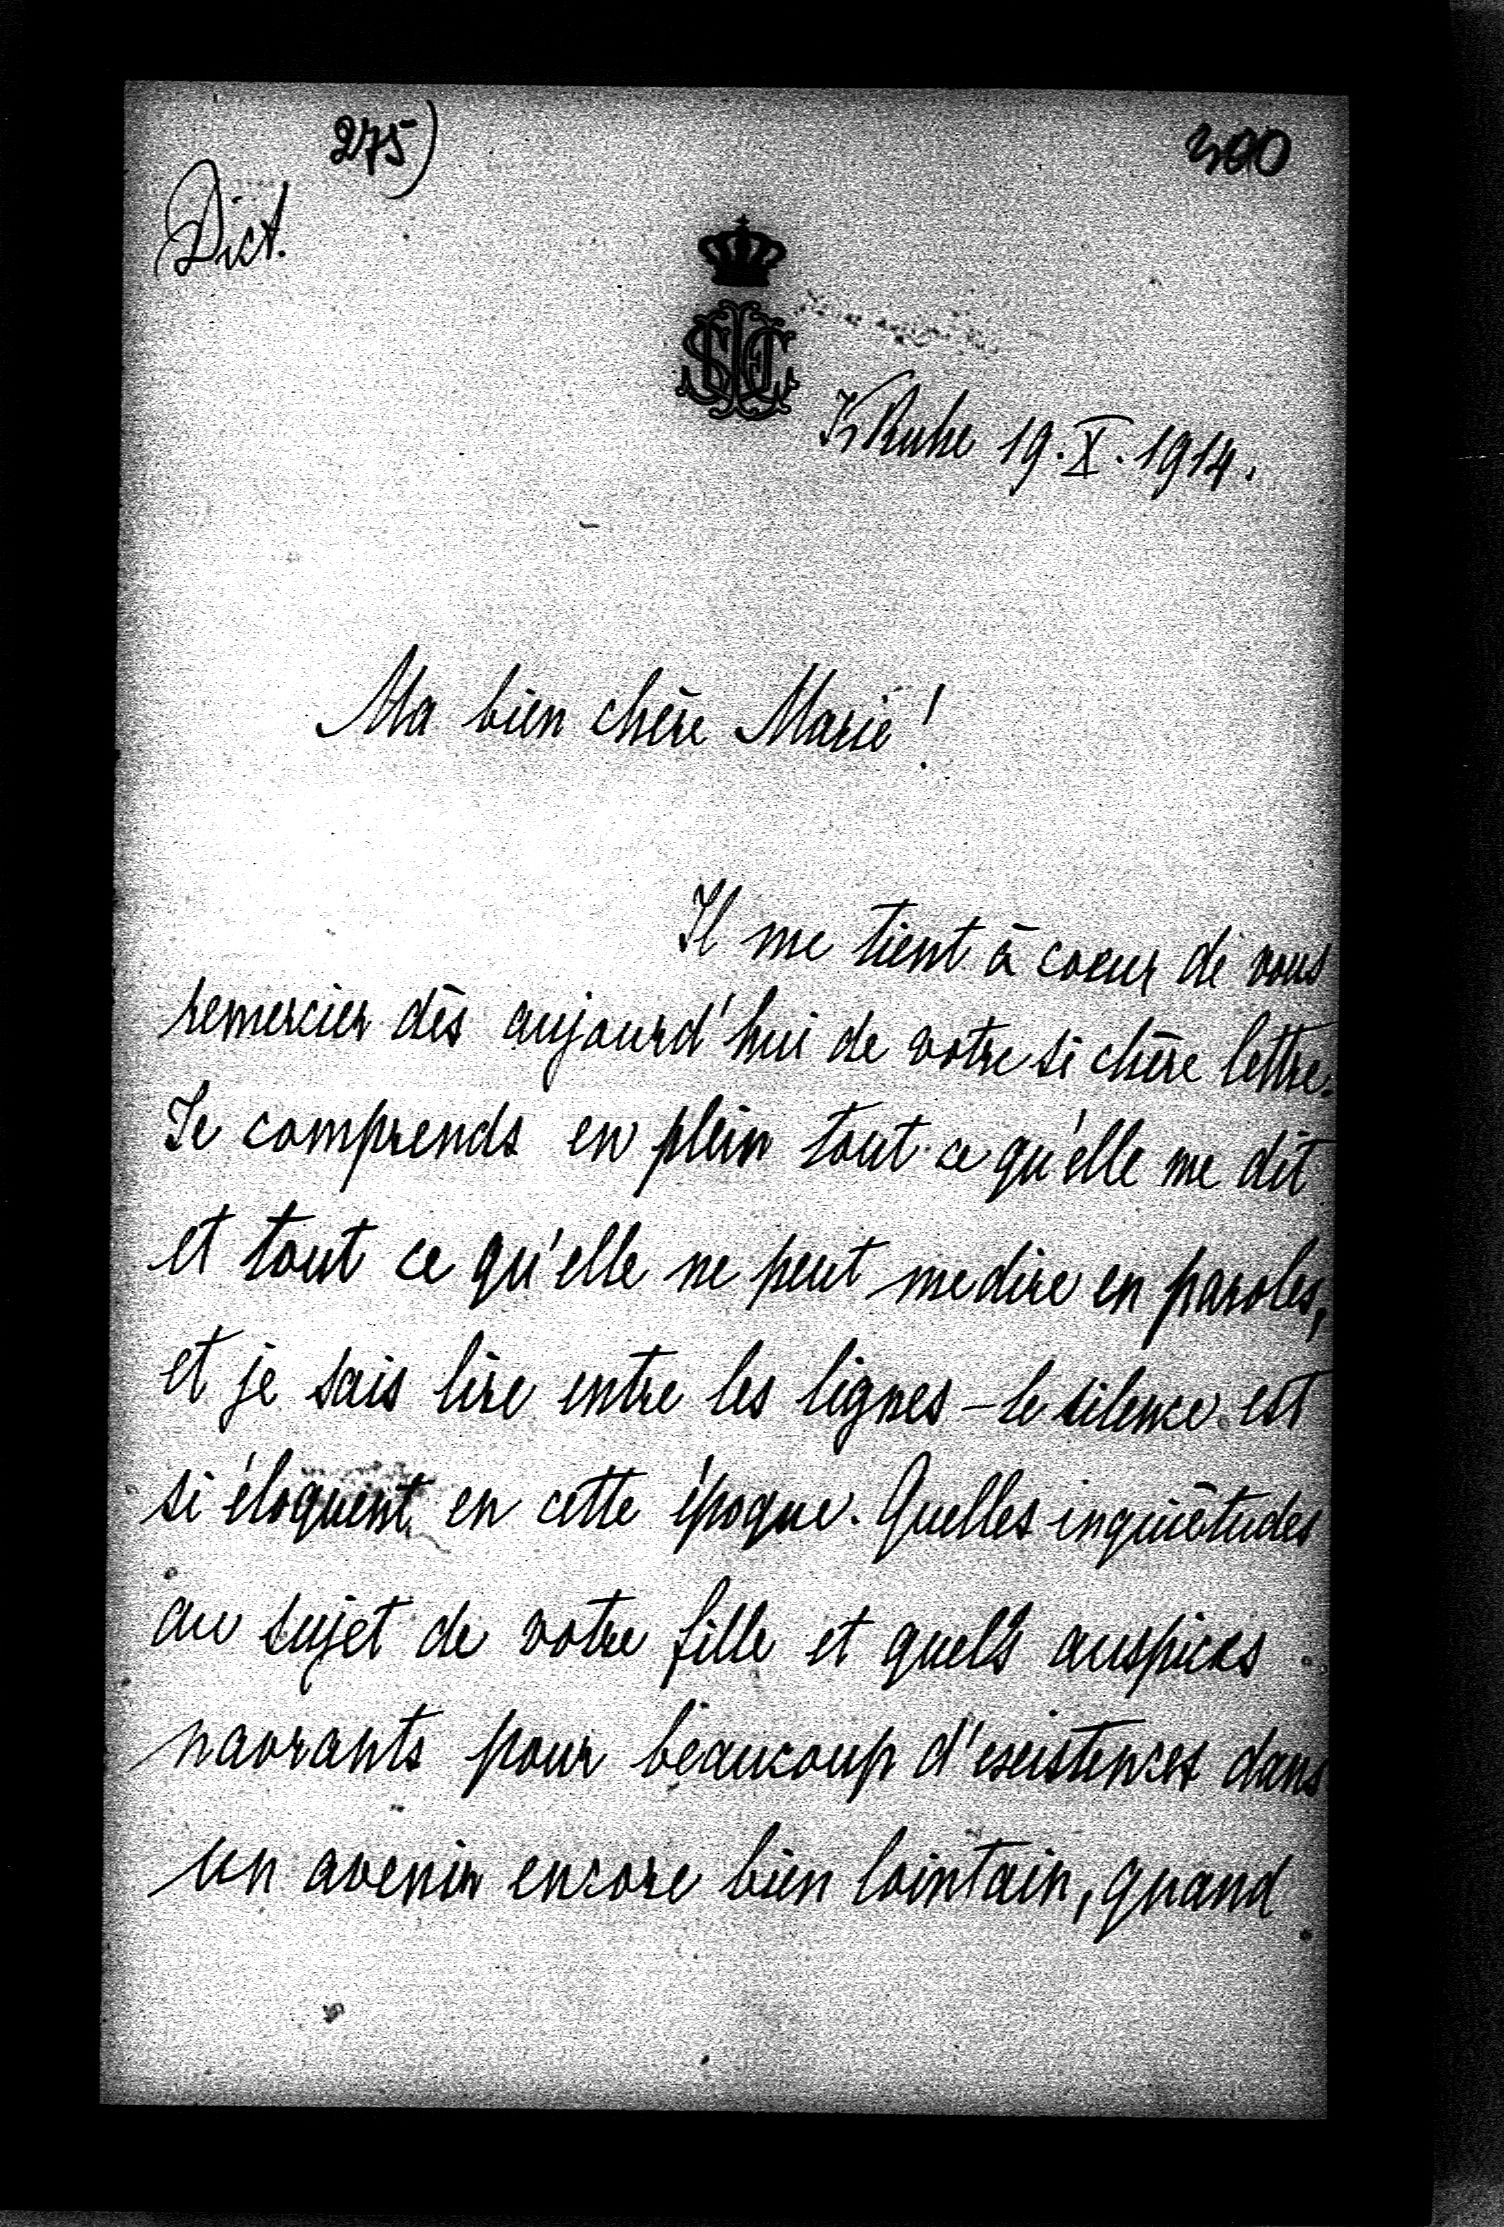 275)
300
Dict.
KRuhe 19.X.1914.
Ma bien chère Marie!
Il me tient à coeur de vous
remercier dès aujourd'hui de votre si chère lettre.
Je comprends en plein tout ce qu'elle me dit
et tout ce qu'elle ne peut me dire en paroles,
et je sais lire entre les lignes – le silence est
si éloquent en cette époque. Quelles inquiètudes
au sujet de votre fille et quels auspices
navrants pour beaucoup d'existences dans
un avenir encore bien lointain, quand